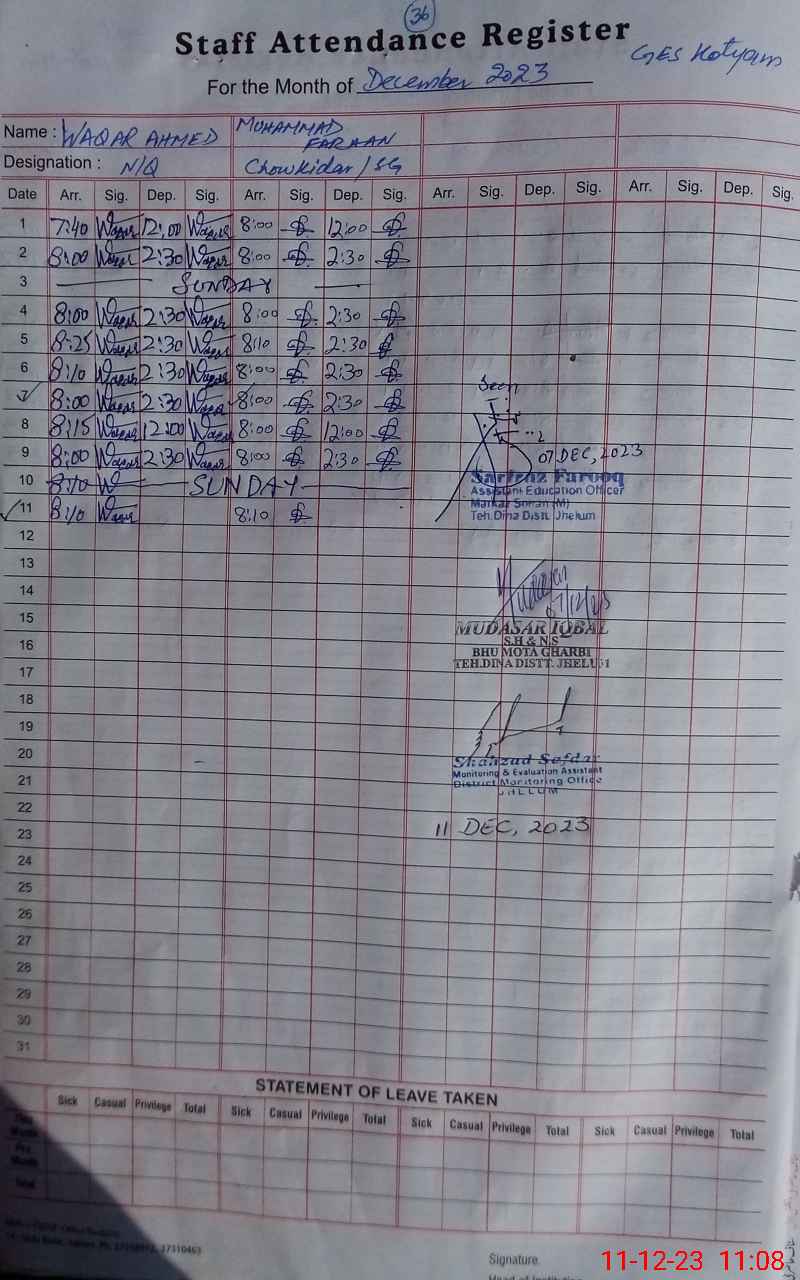 36
Staff Attendance Register
GES Kotyam
For the Month of December 2023
Name : WAQAR AHMED MUHAMMAD FARAAN
Designation : N/Q Chowkidar / SG
Date Arr. Sig. Dep. Sig. Arr. Sig. Dep. Sig. Arr. Sig. Dep. Sig. Arr. Sig. Dep. Sig.
1 7:40 Waqar 12:00 Waqar 8:00 12:00
2 8:00 Waqar 2:30 Waqar 8:00 2:30
3 SUNDAY
4 8:00 Waqar 2:30 Waqar 8:00 2:30
5 8:25 Waqar 2:30 Waqar 8:10 2:30
6 8:10 Waqar 2:30 Waqar 8:00 2:30
7 8:00 Waqar 2:30 Waqar 8:00 2:30
Seen
8 8:15 Waqar 12:00 Waqar 8:00 12:00
9 8:00 Waqar 2:30 Waqar 8:00 2:30
07 DEC, 2023
10 8:10 W SUNDAY
Sarfraz Farooq
Assistant Education Officer
Markaz Sohan (M)
Teh. Dina Distt. Jhelum
11 8:10 Waqar 8:10
12
13
14
07/12/23
15
MUDASAR IQBAL
S.H & N.S
16
BHU MOTA GHARBI
TEH.DINA DISTT. JHELUM
17
18
19
20
Shahzad Safdar
Monitoring & Evaluation Assistant
21
District Monitoring Office
JHELUM
22
11 DEC, 2023
23
24
25
26
27
28
29
30
31
STATEMENT OF LEAVE TAKEN
Sick Casual Privilege Total Sick Casual Privilege Total Sick Casual Privilege Total Sick Casual Privilege Total
Month
Month
Total
37310463
Signature.
11-12-23 11:08
Head of Institution